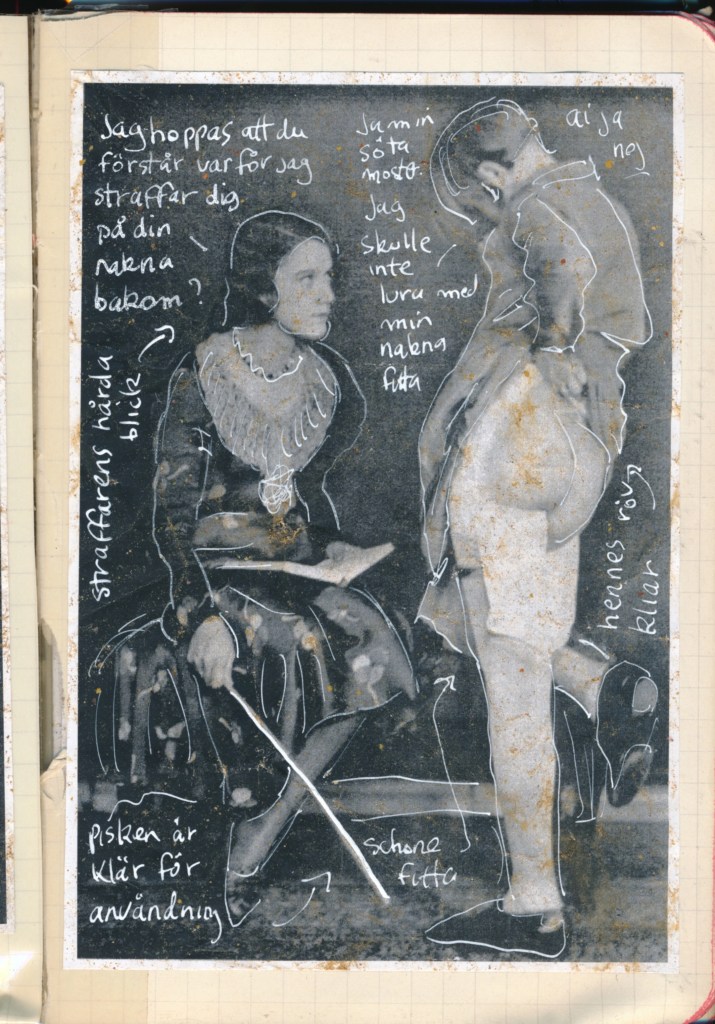 Jag hoppas att du
förstår varför jag
straffar dig
på din
nakna
bakom?
Ja min
söta
moster.
Jag
skulle
inte
lura med
min
nakna
fitta
ai ja
nej
straffarens hårda
blick
hennes röv
kliar
pisken är
klär för
användning
schone
fitta